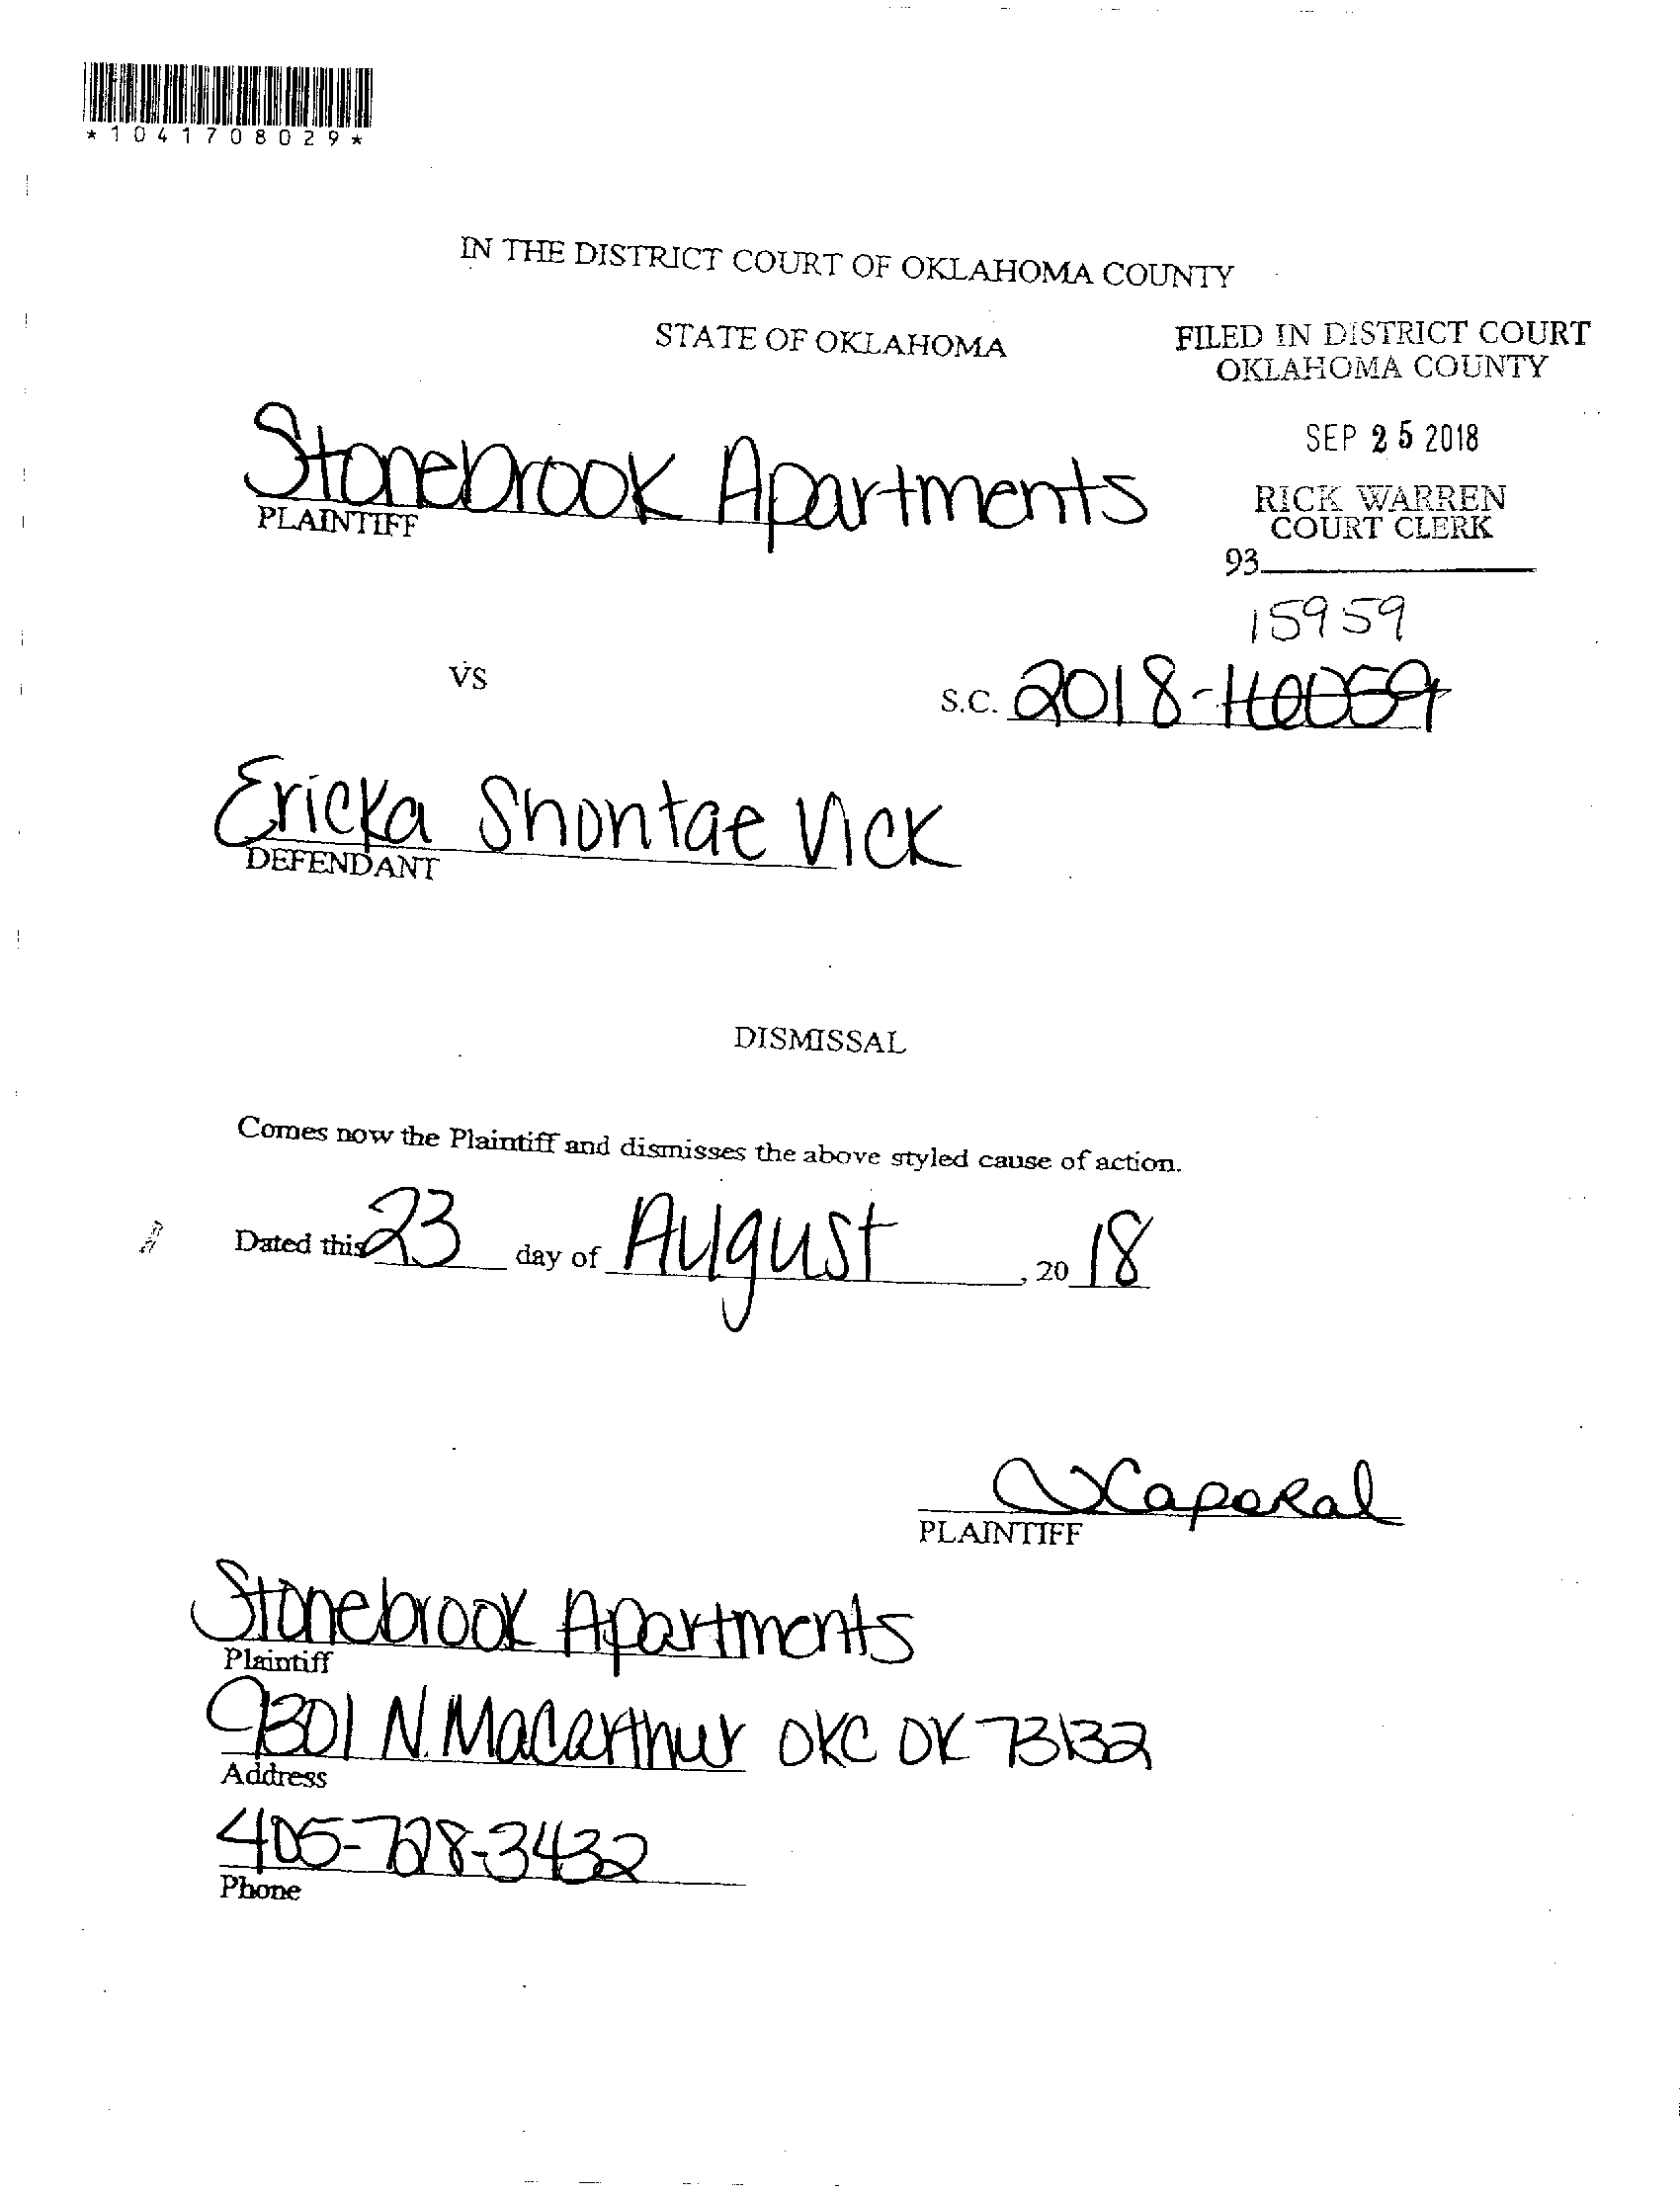 *1041708029*
IN THE DISTRICT COURT OF OKLAHOMA COUNTY
STATE OF OKLAHOMA
FILED IN DISTRICT COURT
OKLAHOMA COUNTY
SEP 25 2018
RICK WARREN
COURT CLERK
93
Stonebrook Apartments
PLAINTIFF
15959
VS
S.C. 2018-16059
Ericka Shontae Vick
DEFENDANT
DISMISSAL
Comes now the Plaintiff and dismisses the above styled cause of action.
Dated this 23 day of August, 20 18
Caporal
PLAINTIFF
Stonebrook Apartments
Plaintiff
9301 N. Macarthur OKC OK 73132
Address
405-728-3432
Phone